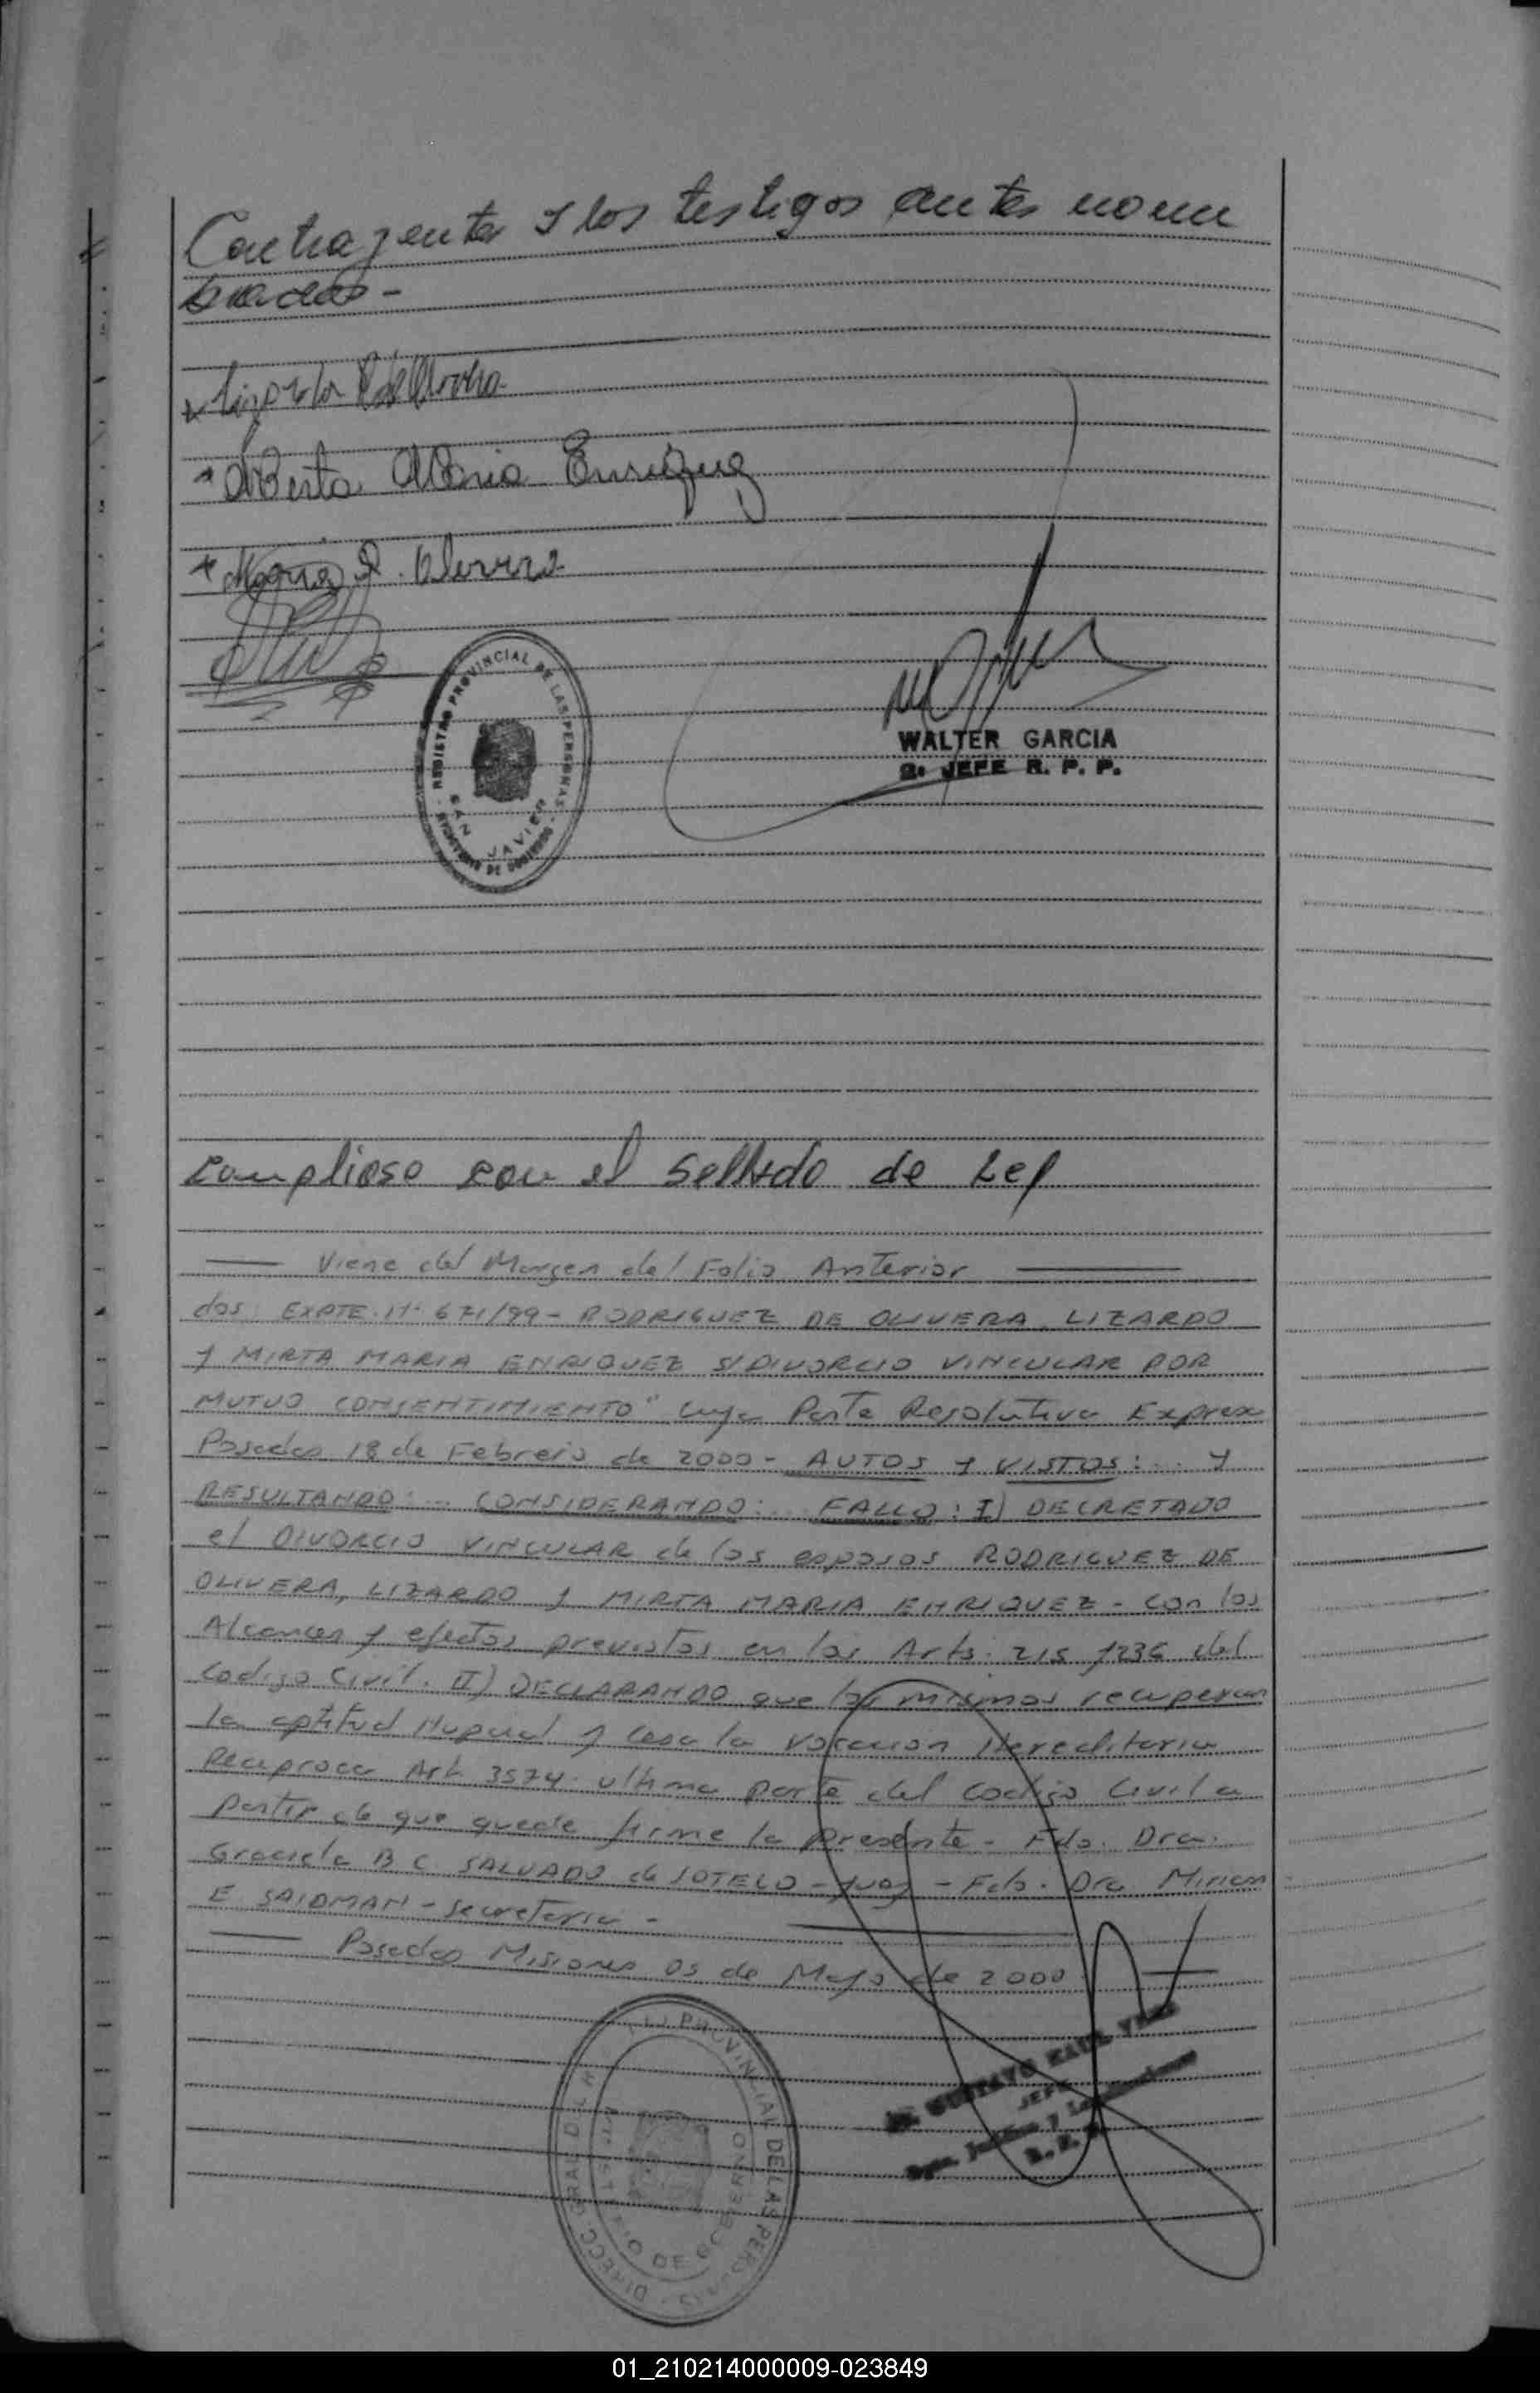 Contrayentes y los testigos antes nom
brados -
Mirta Maria Enriquez
REGISTRO PROVINCIAL DE LAS PERSONAS
SAN JAVIER
WALTER GARCIA
2. JEFE R. P. P.
Complioso con el Sellado de Ley
Viene del Margen del Folio Anterior
dos: EXPTE. Nº 671/99 - RODRIGUEZ DE OLIVERA, LIZARDO
y MIRTA MARIA ENRIQUEZ S/DIVORCIO VINCULAR POR
MUTUO CONSENTIMIENTO" cuya Parte Resolutiva Expresa
Posadas 18 de Febrero de 2000 - AUTOS y VISTOS: ... y
RESULTANDO: ... CONSIDERANDO: ... FALLO: I) DECRETADO
el DIVORCIO VINCULAR de los esposos RODRIGUEZ DE
OLIVERA, LIZARDO y MIRTA MARIA ENRIQUEZ - con los
Alcances y efectos previstos en los Arts. 215 y 236 del
Codigo Civil. II) DECLARANDO que los mismos recuperan
la aptitud Nupcial y cesa la vocacion Hereditaria
Reciproca Art. 3574. ultima parte del Codigo Civil a
partir de que quede firme la Presente - Fdo. Dra.
Graciela B C. SALVADO de SOTELO - Juez - Fdo. Dra Miriam
E SAIDMAN - Secretaria -
Posadas Misiones 05 de Mayo de 2000
PROVINCIAL DE LAS PERSONAS
MINISTERIO DE GOBIERNO
JEFE
01_210214000009-023849